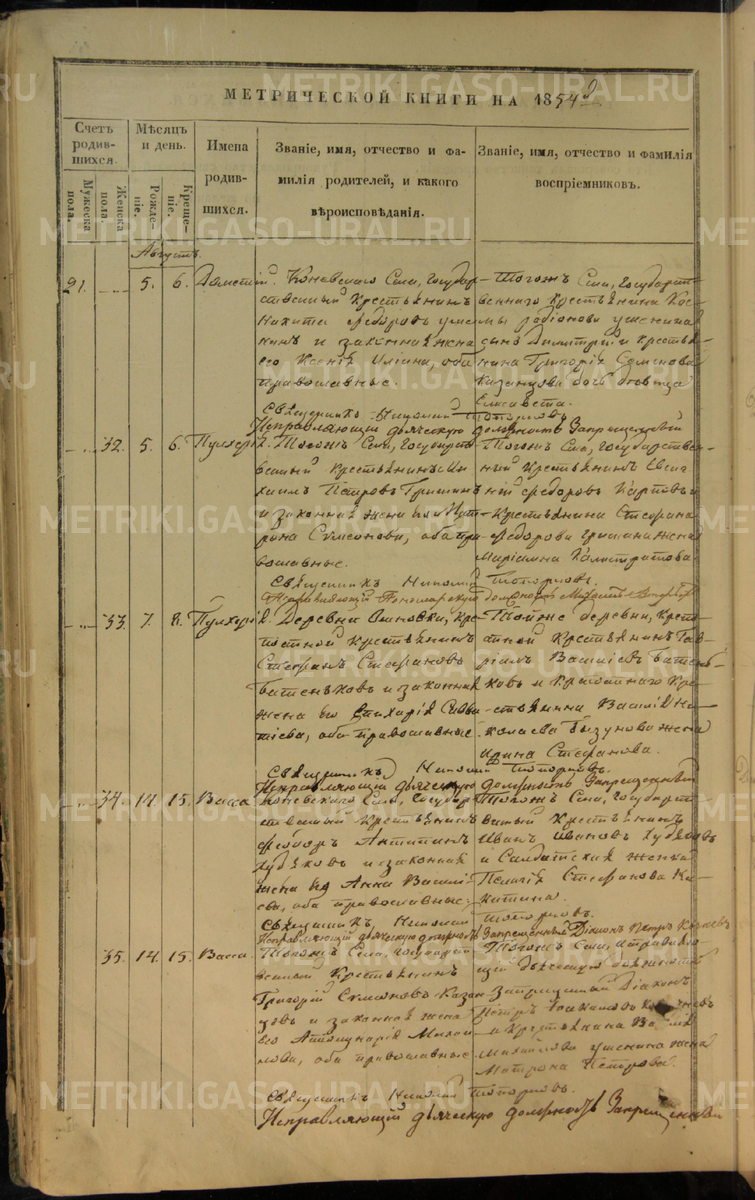 МЕТРИЧЕСКОЙ КНИГИ НА 1854
Счетъ родив- шихся.
Мѣсяцъ и день.
Имена родив- шихся.
Званіе, имя, отчество и фа- милія родителей, и какого вѣроисповѣданія.
Званіе, имя, отчество и фамилія воспріемниковъ.
Мужеска пола.
Женска пола.
Рожде- ніе.
Креще- ніе.
Августъ.
91. 5. 6. Коневскаго Села, Государ-
ственный Крестьянинъ
Никита Федоровъ
и законная жена
его Ксенія, оба
православные.
Тогожъ Села, Государст-
веннаго Крестьянина Кос-
мы Родіонова
сынъ Димитрій и Крестья-
нина Григорія Семенова
Казанцова дочь девица
Елисавета.
Священникъ Николай Топорковъ.
Исправляющій дьяческую должность Запрещенный
32. 5. 6. Пулхерія. Тогожъ Села, Государст-
венный Крестьянинъ Ми-
хаилъ Петровъ Гришинъ
и законная жена его Мат-
рона Сумеонова, оба пра-
вославные.
Тогожъ Села, Государствен-
ный Крестьянинъ
Федоровъ Карповъ и
Крестьянина Стефана
Федорова Гришина жена
Маріамна Калистратова.
Священникъ Николай Топорковъ.
Исправляющій Пономарскую должность
33. 7. 8. Пулхерія. Деревни Ошновки, Кре-
постной Крестьянинъ
Стефанъ Стефановъ
Батеньковъ и законная
жена его Гликерія Савва-
тіева, оба православные
Тойже деревни, Крепо-
стной Крестьянинъ Гав-
ріилъ Васильевъ Батень-
ковъ и Крепостнаго Кре-
стьянина Василія Ни-
колаева Бызунова жена
Ирина Стефанова.
Священникъ Николай Топорковъ.
Исправляющій дьяческую должность Запрещенный
34. 14. 15. Васса. Коневскаго Села, Государ-
ственный Крестьянинъ
Федоръ Антипинъ
Худяковъ и законная
жена его Анна Василь-
ева, оба православные
Тогожъ Села, Государст-
венный Крестьянинъ
Иванъ Ивановъ Худяковъ
и Салдатская женка
Пелагія Стефанова Ни-
китина.
Священникъ Николай Топорковъ.
Исправляющій дьяческую должность Запрещенный Діаконъ Петръ
35. 14. 15. Васса. Тогожъ Села, Государст-
венный Крестьянинъ
Григорій Сумеоновъ Казан-
цовъ и законная жена
его Аполлинарія Михай-
лова, оба православные
Тогожъ Села, Исправляю-
щій дьяческую должность
Запрещенный Діаконъ
Петръ
и Крестьянина Василія
Михайлова Ушенина жена
Матрона Петрова.
Священникъ Николай Топорковъ.
Исправляющій дьяческую должность Запрещенный
METRIKI.GASO-URAL.RU